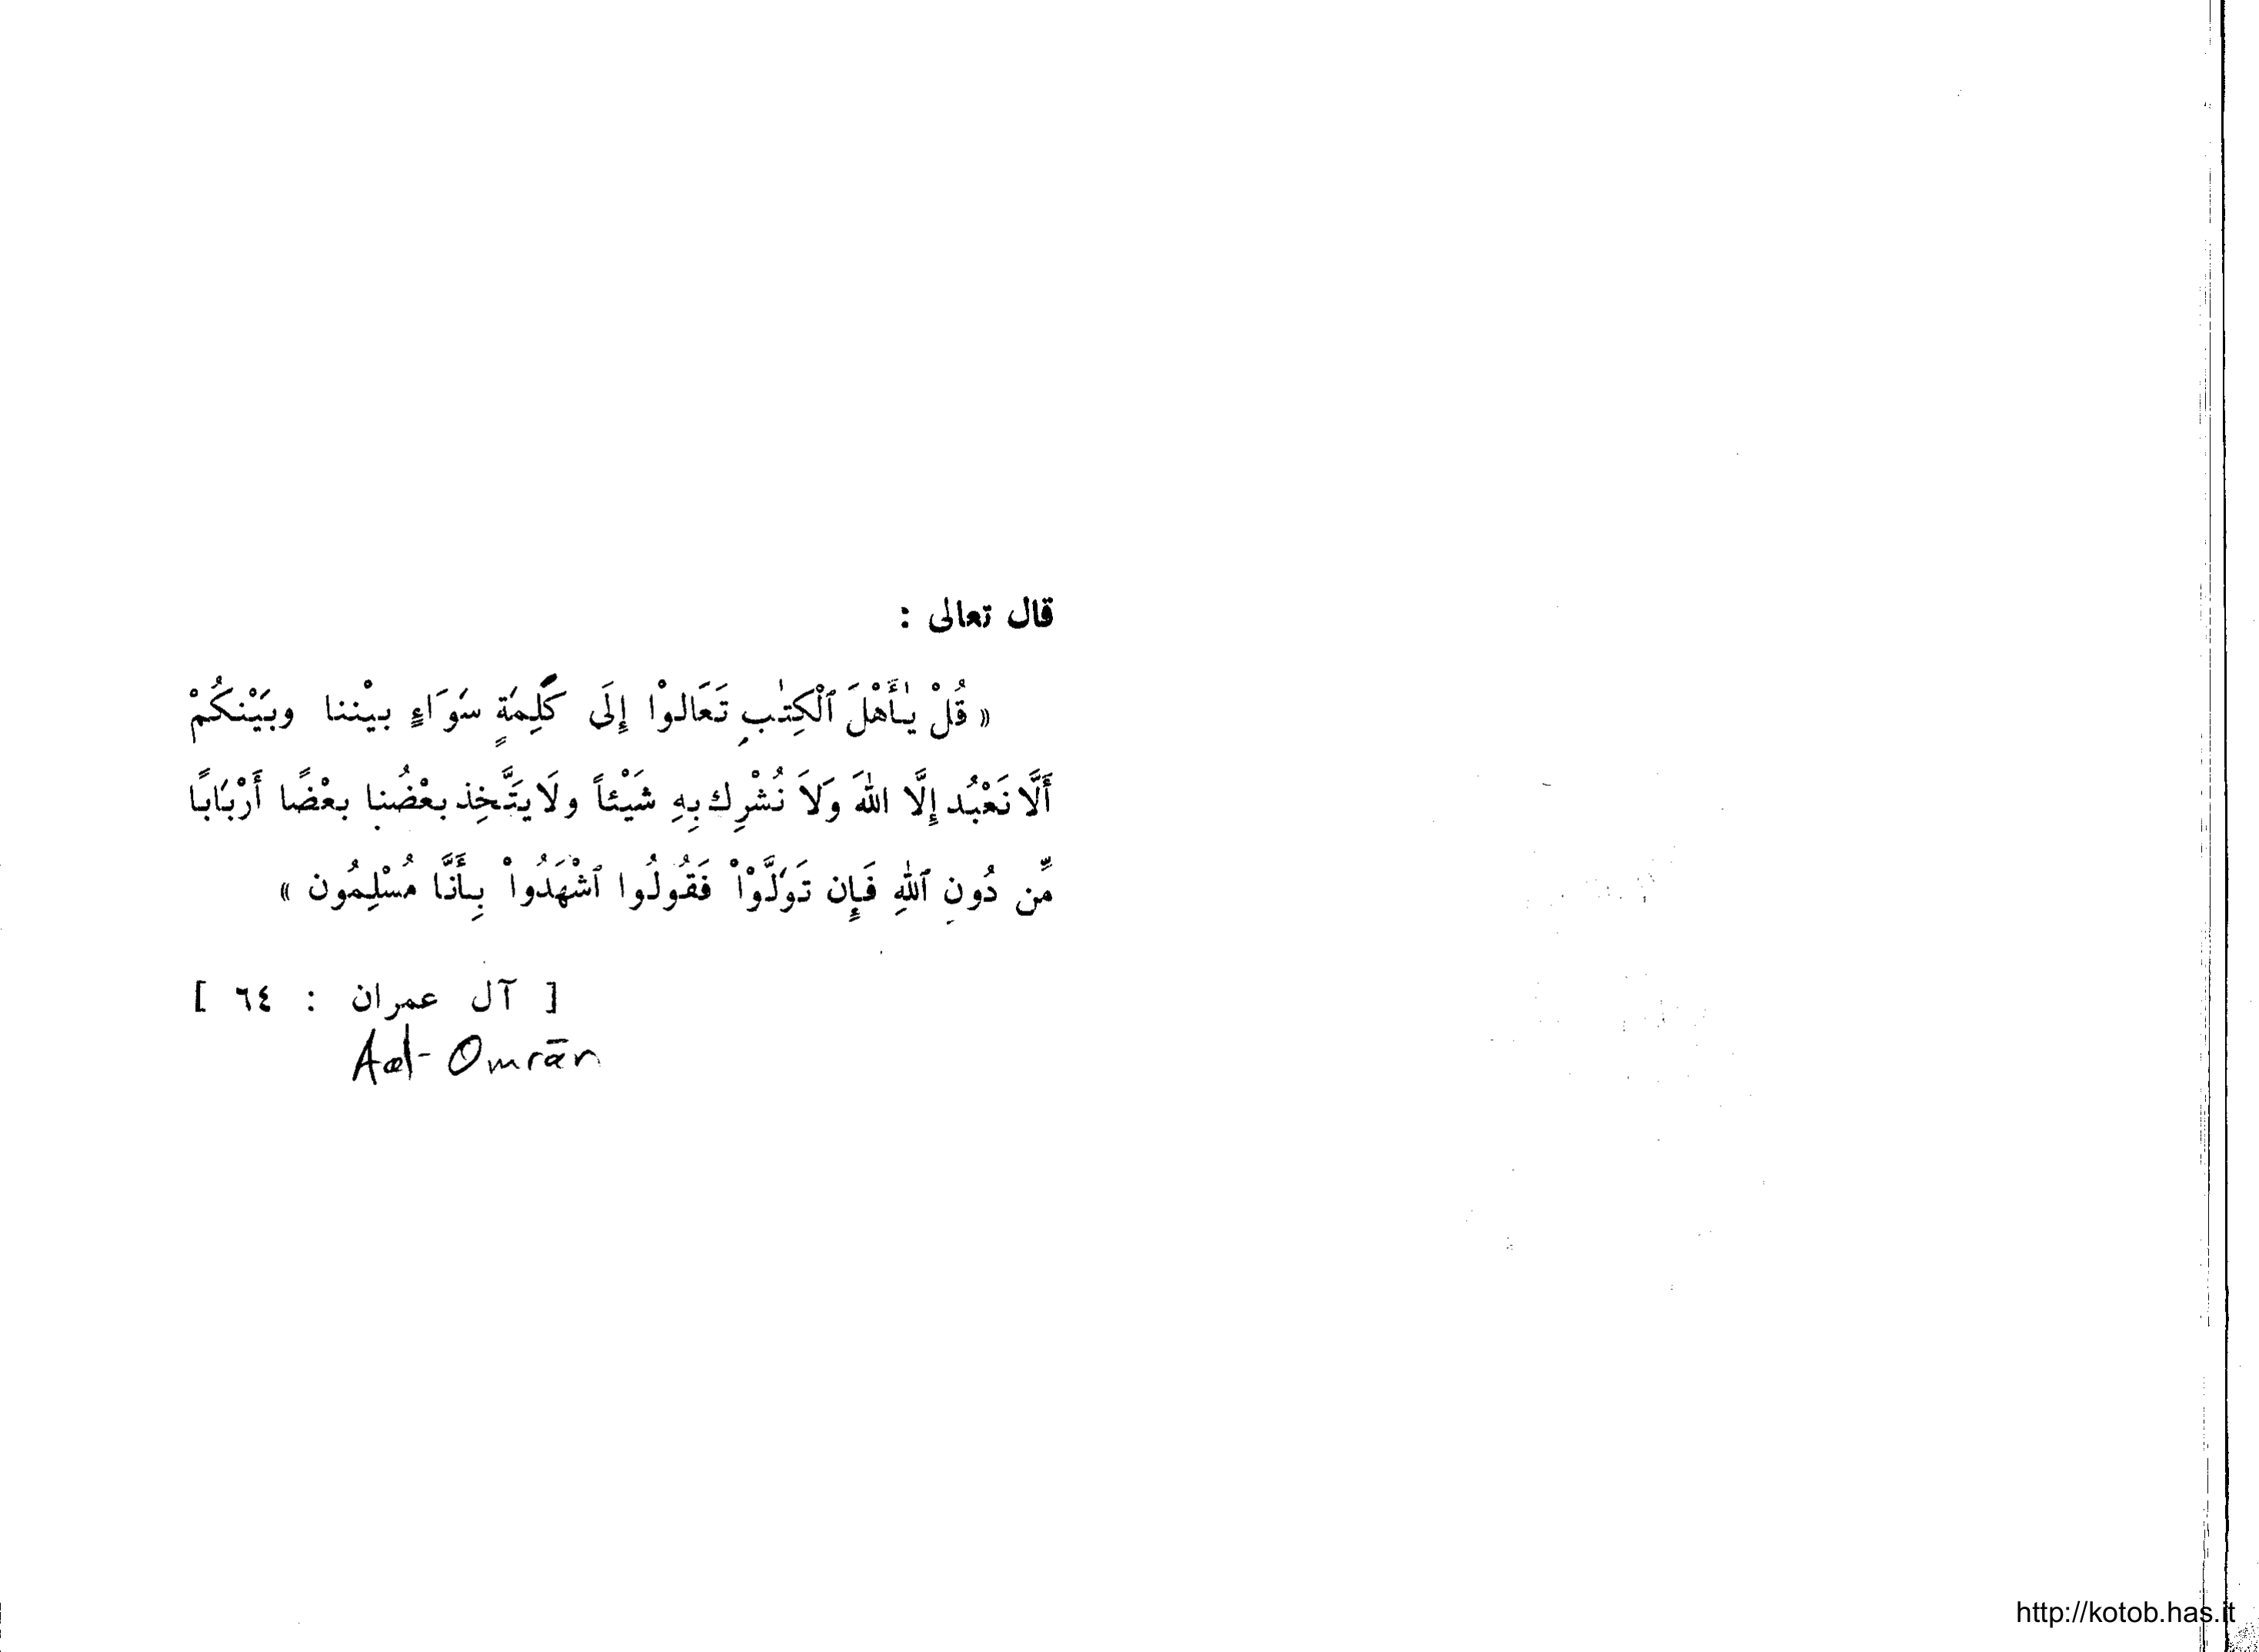 قال تعالى :
« قُلْ يَٰأَهْلَ ٱلْكِتَٰبِ تَعَالوْا إِلَى كَلِمَةٍ سَوَاءٍ بيْننا وبَيْنكُمْ
أَلَّا نَعْبُد إِلَّا اللهَ وَلاَ نُشْرِك بِهِ شَيْئاً ولَا يَتَّخِذ بعْضُنا بعْضًا أَرْبَابًا
مِّن دُونِ ٱللهِ فَإِن تَوَلَّوْاْ فَقُولُوا ٱشْهَدُواْ بِأَنَّا مُسْلِمُون »
[ آل عمران : ٦٤ ]
Aal-Omrān
http://kotob.has.it